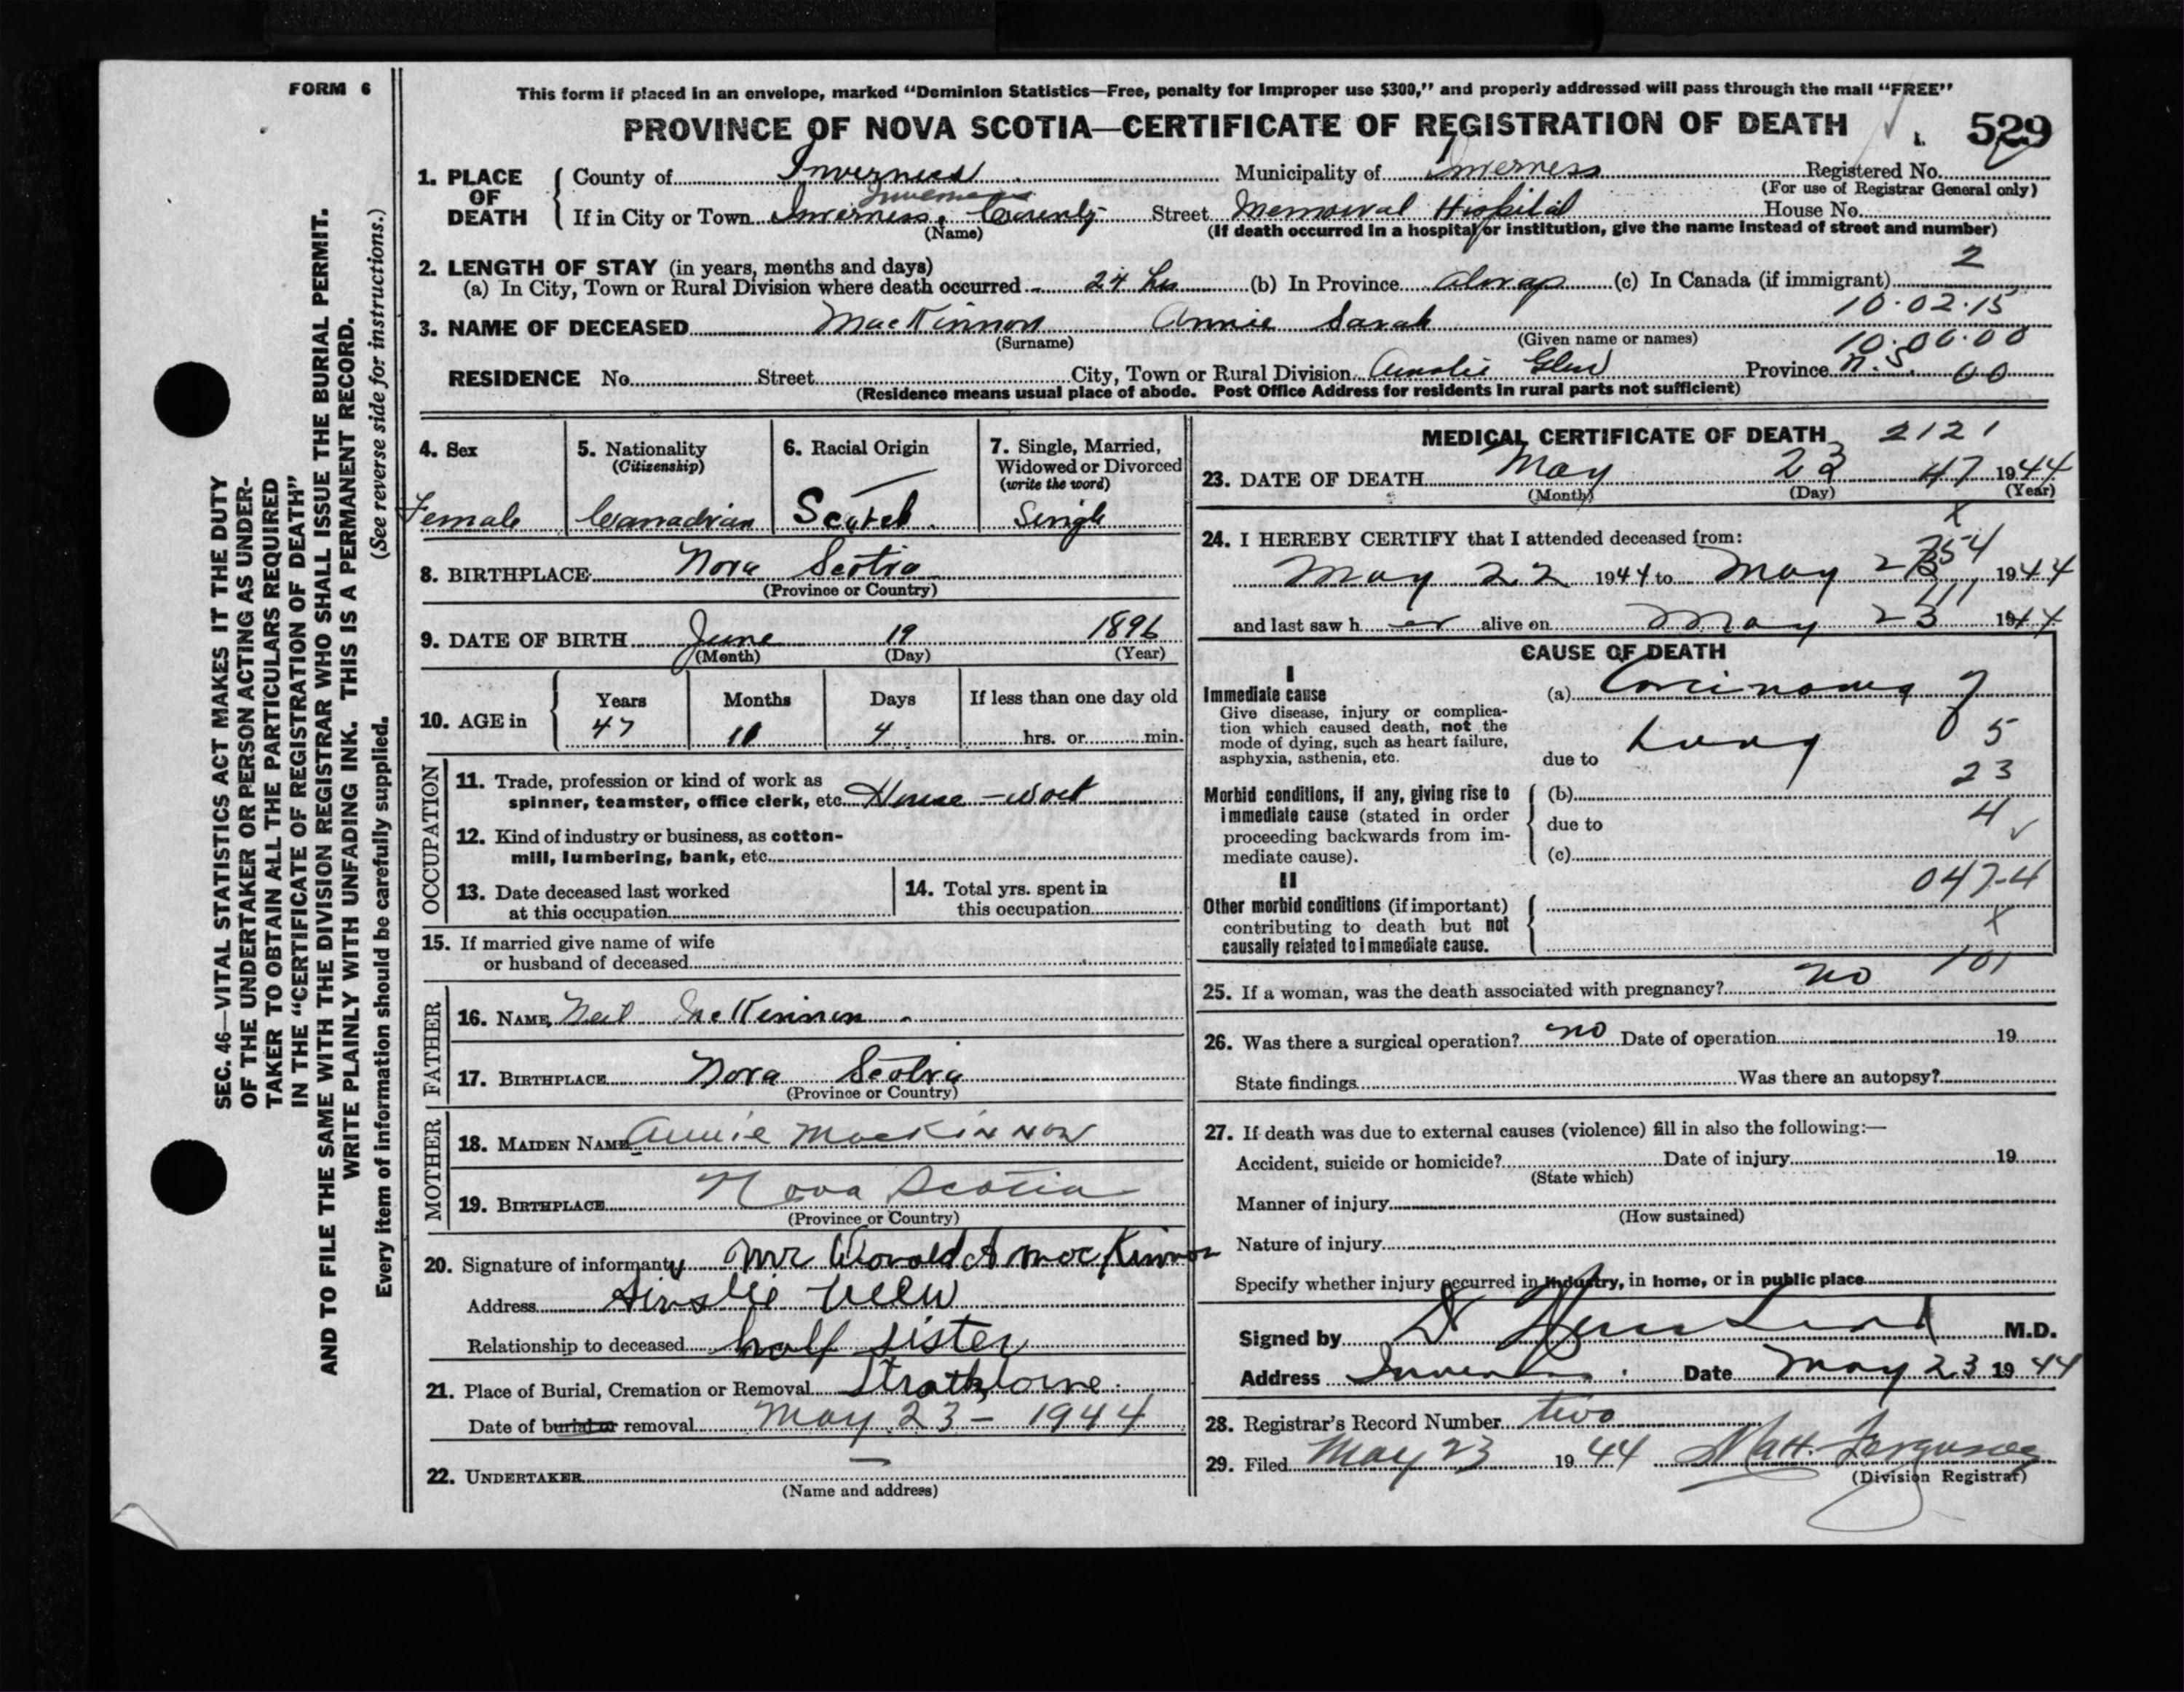 FORM 6
This form if placed in an envelope, marked "Dominion Statistics—Free, penalty for improper use $300," and properly addressed will pass through the mail "FREE"
PROVINCE OF NOVA SCOTIA—CERTIFICATE OF REGISTRATION OF DEATH 529
SEC. 46—VITAL STATISTICS ACT MAKES IT THE DUTY
OF THE UNDERTAKER OR PERSON ACTING AS UNDER-
TAKER TO OBTAIN ALL THE PARTICULARS REQUIRED
IN THE "CERTIFICATE OF REGISTRATION OF DEATH"
AND TO FILE THE SAME WITH THE DIVISION REGISTRAR WHO SHALL ISSUE THE BURIAL PERMIT.
WRITE PLAINLY WITH UNFADING INK. THIS IS A PERMANENT RECORD.
(See reverse side for instructions.)
Every item of information should be carefully supplied.
1. PLACE OF DEATH
County of Inverness Municipality of Inverness Registered No.
(For use of Registrar General only)
Inverness
If in City or Town Inverness, County Street Memorial Hospital House No.
(Name) (If death occurred in a hospital or institution, give the name instead of street and number)
2. LENGTH OF STAY (in years, months and days) 2
(a) In City, Town or Rural Division where death occurred 24 hrs (b) In Province always (c) In Canada (if immigrant)
10.02.15
3. NAME OF DECEASED MacKinnon Annie Sarah
(Surname) (Given name or names) 10.00.00
RESIDENCE No. Street City, Town or Rural Division Ainslie Glen Province N.S. 00
(Residence means usual place of abode. Post Office Address for residents in rural parts not sufficient)
4. Sex 5. Nationality 6. Racial Origin 7. Single, Married,
(Citizenship) Widowed or Divorced
(write the word)
Female Canadian Scotch Single
8. BIRTHPLACE Nova Scotia
(Province or Country)
9. DATE OF BIRTH June 19 1896
(Month) (Day) (Year)
10. AGE in Years Months Days If less than one day old
47 11 4 hrs. or min.
OCCUPATION
11. Trade, profession or kind of work as
spinner, teamster, office clerk, etc. House-work
12. Kind of industry or business, as cotton-
mill, lumbering, bank, etc.
13. Date deceased last worked
at this occupation
14. Total yrs. spent in
this occupation
15. If married give name of wife
or husband of deceased
FATHER
16. NAME Neil McKinnon
17. BIRTHPLACE Nova Scotia
(Province or Country)
MOTHER
18. MAIDEN NAME Annie MacKinnon
19. BIRTHPLACE Nova Scotia
(Province or Country)
20. Signature of informant Mrs Donald A MacKinnon
Address Ainslie Glen
Relationship to deceased half sister
21. Place of Burial, Cremation or Removal Strathlorne
Date of burial or removal May 23 - 1944
22. UNDERTAKER —
(Name and address)
MEDICAL CERTIFICATE OF DEATH 2121
23. DATE OF DEATH May 23 47 1944
(Month) (Day) (Year)
X
24. I HEREBY CERTIFY that I attended deceased from:
May 22 1944 to May 23 1944
and last saw h er alive on May 23 1944
CAUSE OF DEATH
I
Immediate cause (a) Carcinoma of
Give disease, injury or complica-
tion which caused death, not the
mode of dying, such as heart failure,
asphyxia, asthenia, etc.
due to Lung 5
23
Morbid conditions, if any, giving rise to (b)
immediate cause (stated in order due to 4
proceeding backwards from im-
mediate cause). (c)
II 047-4
Other morbid conditions (if important)
contributing to death but not X
causally related to immediate cause.
101
25. If a woman, was the death associated with pregnancy? no
26. Was there a surgical operation? no Date of operation 19
State findings Was there an autopsy?
27. If death was due to external causes (violence) fill in also the following:—
Accident, suicide or homicide? Date of injury 19
(State which)
Manner of injury
(How sustained)
Nature of injury
Specify whether injury occurred in industry, in home, or in public place
Signed by M.D.
Address Inverness Date May 23 1944
28. Registrar's Record Number two
29. Filed May 23 1944 Matt. Ferguson
(Division Registrar)